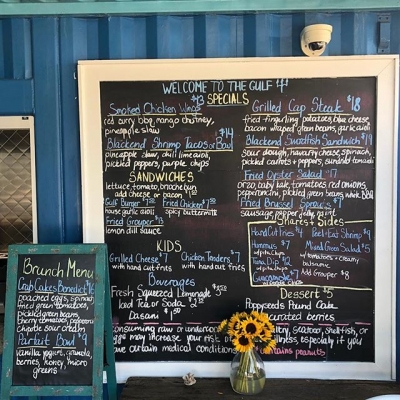 WELCOME TO THE GULF
SPECIALS
Smoked Chicken Wings $13
red curry bbq, mango chutney,
pineapple slaw
Blackened Shrimp Tacos or Bowl $14
pineapple slaw, chili lime aioli,
pickled peppers, purple chips
SANDWICHES
lettuce, tomato, brioche bun
add cheese or bacon
Gulf Burger
house garlic aioli
Fried Chicken
spicy buttermilk
Fried Grouper
lemon dill sauce
KIDS
Grilled Cheese
with hand cut fries
Chicken Tenders
with hand cut fries
Beverages
Fresh Squeezed Lemonade
Iced Tea or Soda
Dasani $1.50
Grilled Cap Steak $18
fried fingerling potatoes, blue cheese,
bacon wrapped green beans, garlic aioli
Blackened Swordfish Sandwich
sour dough, havarti cheese, spinach,
pickled carrots + peppers, sundried tomato
Fried Oyster Salad
orzo, baby kale, tomatoes, red onions,
pepperoncini, pickled green beans
Fried Brussel Sprouts
sausage, pepper jelly
Shares + Sides
Hand Cut Fries $4
Hummus $7
Tuna Dip
Guacamole
Peel + Eat Shrimp
Mixed Green Salad $5
tomatoes + creamy
Add Grouper $8
Dessert $5
Poppyseed Pound Cake
macerated berries
consuming raw or undercooked
seafood, shellfish, or
eggs may increase your risk
illness, especially if you
have certain medical conditions
contains peanuts
Brunch Menu
Crab Cakes Benedict
poached eggs, spinach
fried green tomatoes
pickled green
beans
cherry tomatoes
sour cream
Parfait Bowl 9
vanilla yogurt, granola
berries, honey, micro
greens